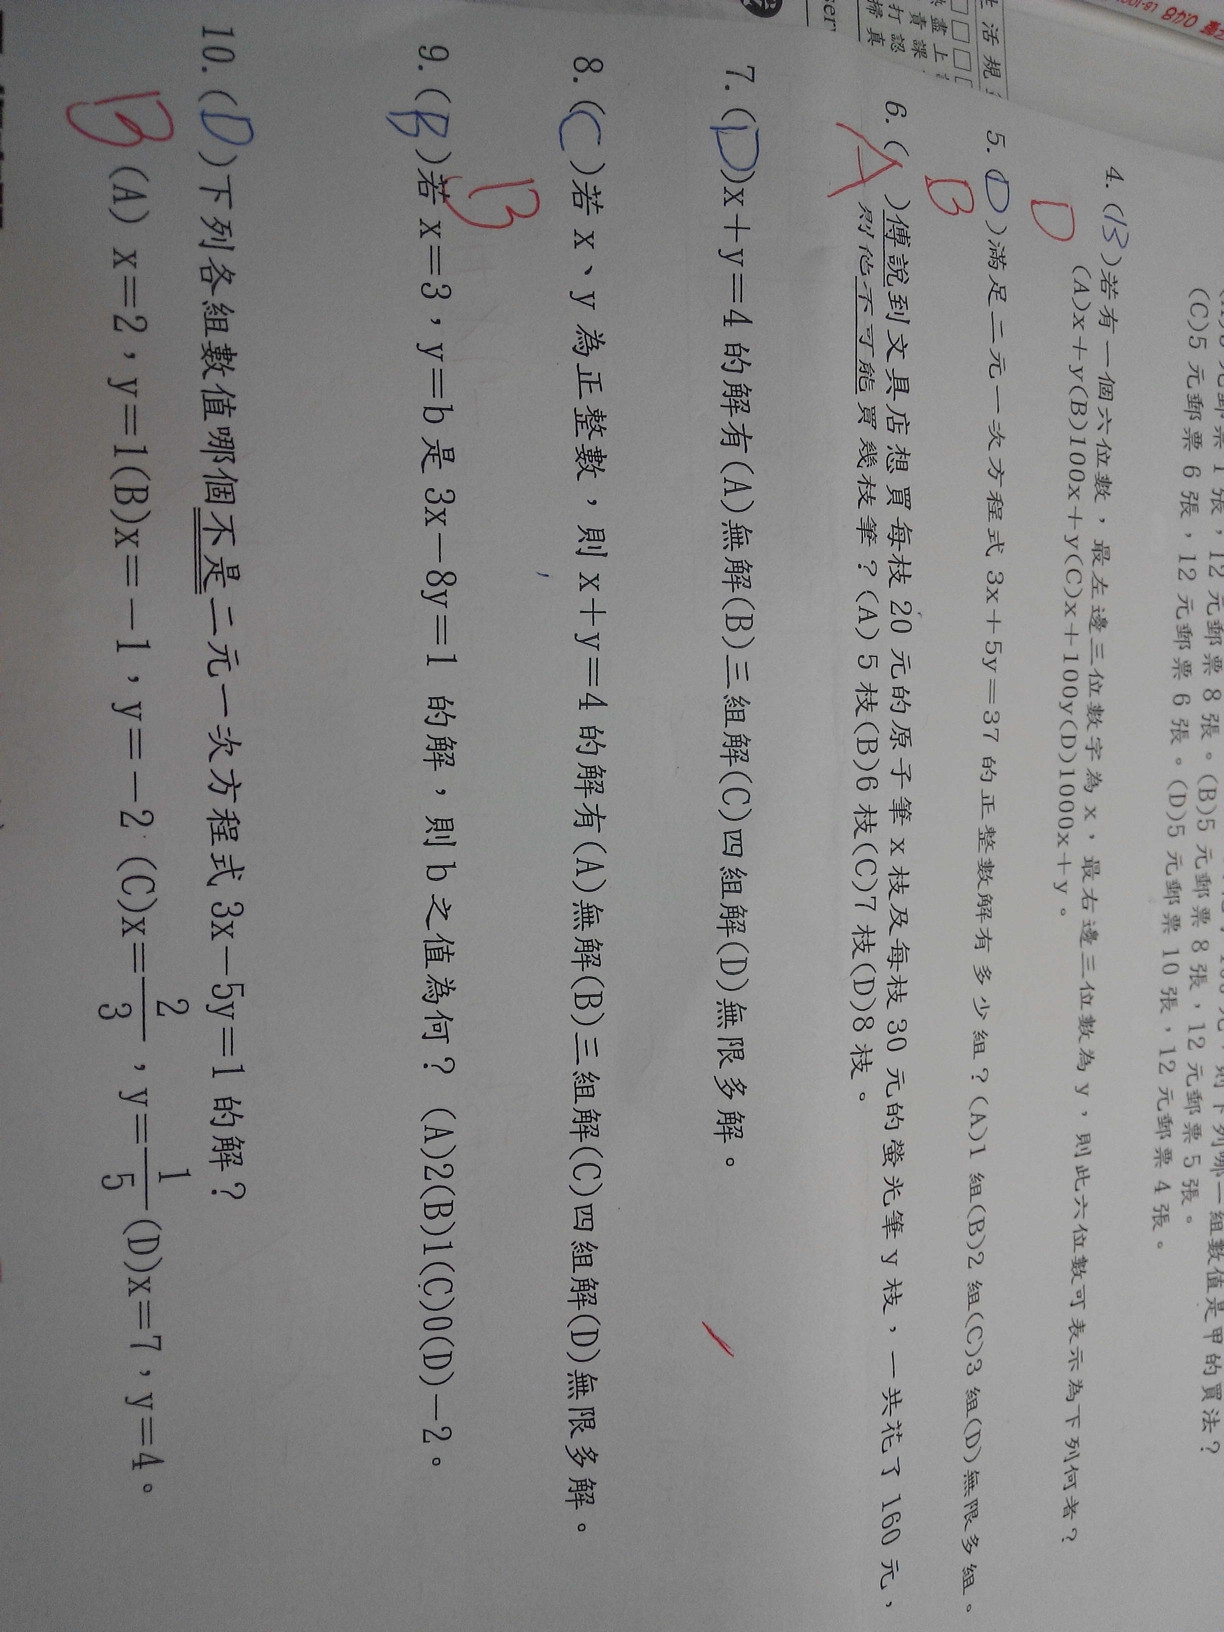 (C)5 元郵票 6 張，12 元郵票 6 張。(D)5 元郵票 10 張，12 元郵票 4 張。
4.(B)若有一個六位數，最左邊三位數字為 x，最右邊三位數為 y，則此六位數可表示為下列何者？
D (A)x＋y(B)100x＋y(C)x＋100y(D)1000x＋y。
5.(D)滿足二元一次方程式 3x＋5y＝37 的正整數解有多少組？(A)1 組(B)2 組(C)3 組(D)無限多組。
B
6.( )傅說到文具店想買每枝 20 元的原子筆 x 枝及每枝 30 元的螢光筆 y 枝，一共花了 160 元，
A 則他不可能買幾枝筆？(A)5 枝(B)6 枝(C)7 枝(D)8 枝。
7.(D)x＋y＝4 的解有(A)無解(B)三組解(C)四組解(D)無限多解。
8.(C)若 x、y 為正整數，則 x＋y＝4 的解有(A)無解(B)三組解(C)四組解(D)無限多解。
B
9.(B)若 x＝3，y＝b 是 3x－8y＝1 的解，則 b 之值為何？(A)2(B)1(C)0(D)－2。
10.(D)下列各組數值哪個不是二元一次方程式 3x－5y＝1 的解？
B (A) x＝2，y＝1(B)x＝－1，y＝－2 (C)x＝2/3，y＝1/5(D)x＝7，y＝4。